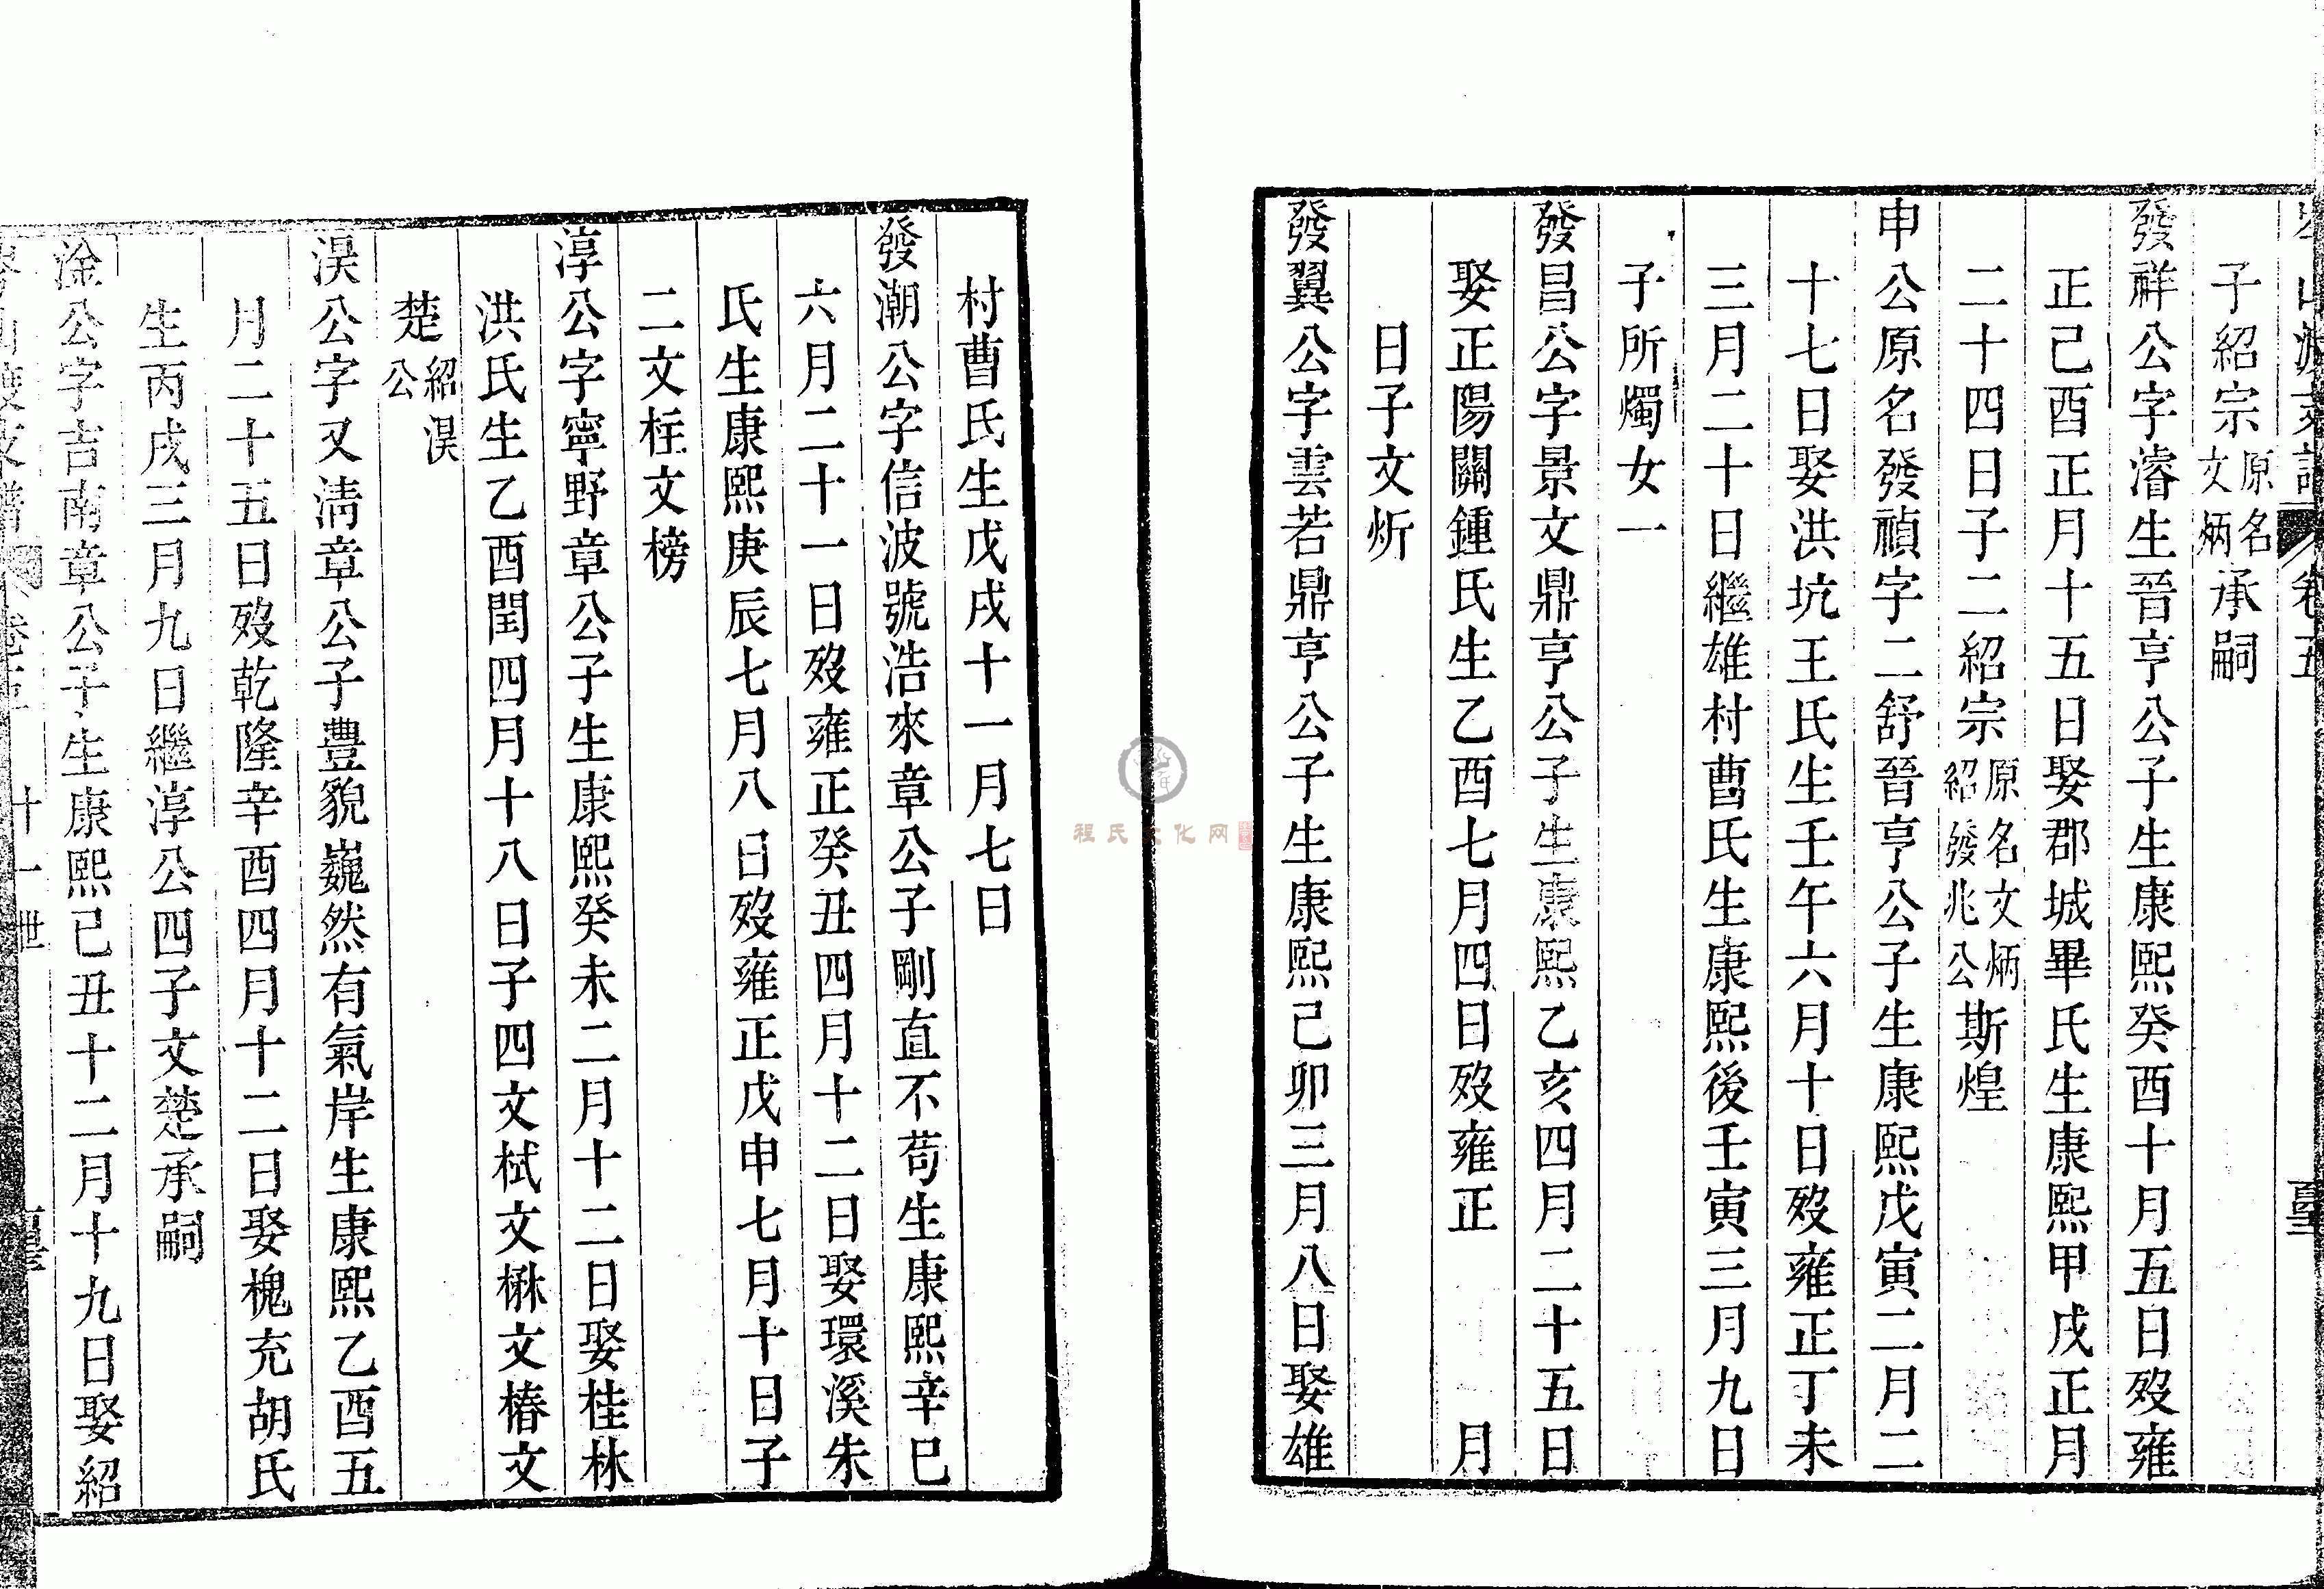 子紹宗原名文炳承嗣
發祥公字濬生晉亨公子生康熙癸酉十月五日歿雍
正己酉正月十五日娶郡城畢氏生康熙甲戌正月
二十四日子二紹宗原名文炳紹發兆公斯煌
申公原名發禎字二舒晉亨公子生康熙戊寅二月二
十七日娶洪坑王氏生壬午六月十日歿雍正丁未
三月二十日繼雄村曹氏生康熙後壬寅三月九日
子所燭女一
發昌公字景文鼎亨公子生康熙乙亥四月二十五日
娶正陽關鍾氏生乙酉七月四日歿雍正 月
日子文炘
發翼公字雲若鼎亨公子生康熙己卯三月八日娶雄
村曹氏生戊戌十一月七日
發潮公字信波號浩來章公子剛直不苟生康熙辛巳
六月二十一日歿雍正癸丑四月十二日娶環溪朱
氏生康熙庚辰七月八日歿雍正戊申七月十日子
二文柱文榜
淳公字寧野章公子生康熙癸未二月十二日娶桂林
洪氏生乙酉閏四月十八日子四文栻文楙文椿文
楚紹淏公
淏公字又淸章公子豐貌巍然有氣岸生康熙乙酉五
月二十五日歿乾隆辛酉四月十二日娶槐充胡氏
生丙戌三月九日繼淳公四子文楚承嗣
淦公字吉南章公子生康熙己丑十二月十九日娶紹
十一世
程氏文化网